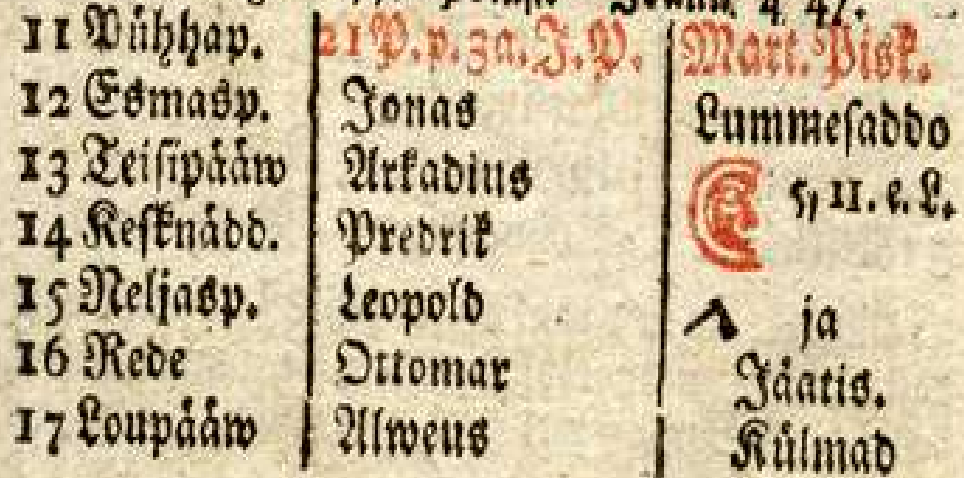 Joann. 4, 47.
11 Pühhap. 21 P. p. 3a. J. P. Mart. Pisk.
12 Esmasp. Jonas Lummesaddo
13 Teisipääw Arkadius
14 Keſknädd. Predrik 5, 11. e. L.
15 Neljasp. Leopold ja
16 Rede Ottomar Jäätis.
17 Loupääw Alweus Külmad